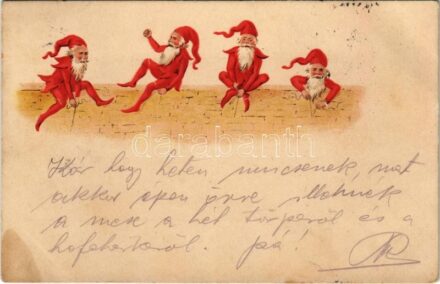 Kár hogy heten nincsenek, mert
akkor épen önre illenek
a mese a hét törpéről és a
hófehérkéről. Pá!
darabanth